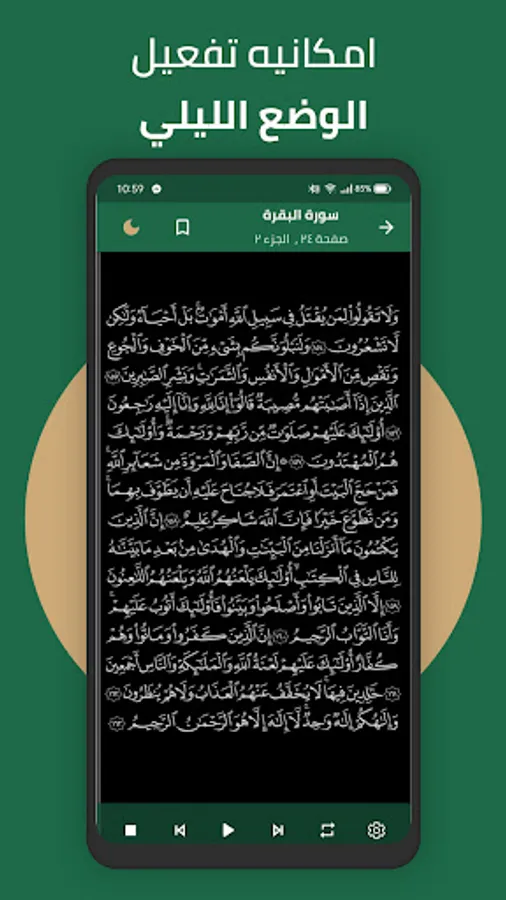 امكانيه تفعيل
الوضع الليلي
10:59
85%
سورة البقرة
صفحة ٢٤ , الجزء ٢
وَلَا تَقُولُوا۟ لِمَن يُقْتَلُ فِى سَبِيلِ ٱللَّهِ أَمْوَٰتٌۢ ۚ بَلْ أَحْيَآءٌ وَلَٰكِن
لَّا تَشْعُرُونَ ١٥٤ وَلَنَبْلُوَنَّكُم بِشَىْءٍ مِّنَ ٱلْخَوْفِ وَٱلْجُوعِ
وَنَقْصٍ مِّنَ ٱلْأَمْوَٰلِ وَٱلْأَنفُسِ وَٱلثَّمَرَٰتِ ۗ وَبَشِّرِ ٱلصَّٰبِرِينَ ١٥٥
ٱلَّذِينَ إِذَآ أَصَٰبَتْهُم مُّصِيبَةٌ قَالُوٓا۟ إِنَّا لِلَّهِ وَإِنَّآ إِلَيْهِ رَٰجِعُونَ
١٥٦ أُو۟لَٰٓئِكَ عَلَيْهِمْ صَلَوَٰتٌ مِّن رَّبِّهِمْ وَرَحْمَةٌ ۖ وَأُو۟لَٰٓئِكَ
هُمُ ٱلْمُهْتَدُونَ ١٥٧ ۞ إِنَّ ٱلصَّفَا وَٱلْمَرْوَةَ مِن شَعَآئِرِ ٱللَّهِ ۖ
فَمَنْ حَجَّ ٱلْبَيْتَ أَوِ ٱعْتَمَرَ فَلَا جُنَاحَ عَلَيْهِ أَن يَطَّوَّفَ بِهِمَا ۚ
وَمَن تَطَوَّعَ خَيْرًا فَإِنَّ ٱللَّهَ شَاكِرٌ عَلِيمٌ ١٥٨ إِنَّ ٱلَّذِينَ
يَكْتُمُونَ مَآ أَنزَلْنَا مِنَ ٱلْبَيِّنَٰتِ وَٱلْهُدَىٰ مِنۢ بَعْدِ مَا بَيَّنَّٰهُ
لِلنَّاسِ فِى ٱلْكِتَٰبِ ۙ أُو۟لَٰٓئِكَ يَلْعَنُهُمُ ٱللَّهُ وَيَلْعَنُهُمُ ٱللَّٰعِنُونَ
١٥٩ إِلَّا ٱلَّذِينَ تَابُوا۟ وَأَصْلَحُوا۟ وَبَيَّنُوا۟ فَأُو۟لَٰٓئِكَ أَتُوبُ عَلَيْهِمْ ۚ
وَأَنَا ٱلتَّوَّابُ ٱلرَّحِيمُ ١٦٠ إِنَّ ٱلَّذِينَ كَفَرُوا۟ وَمَاتُوا۟ وَهُمْ
كُفَّارٌ أُو۟لَٰٓئِكَ عَلَيْهِمْ لَعْنَةُ ٱللَّهِ وَٱلْمَلَٰٓئِكَةِ وَٱلنَّاسِ أَجْمَعِينَ
١٦١ خَٰلِدِينَ فِيهَا ۖ لَا يُخَفَّفُ عَنْهُمُ ٱلْعَذَابُ وَلَا هُمْ يُنظَرُونَ
١٦٢ وَإِلَٰهُكُمْ إِلَٰهٌ وَٰحِدٌ ۖ لَّآ إِلَٰهَ إِلَّا هُوَ ٱلرَّحْمَٰنُ ٱلرَّحِيمُ ١٦٣